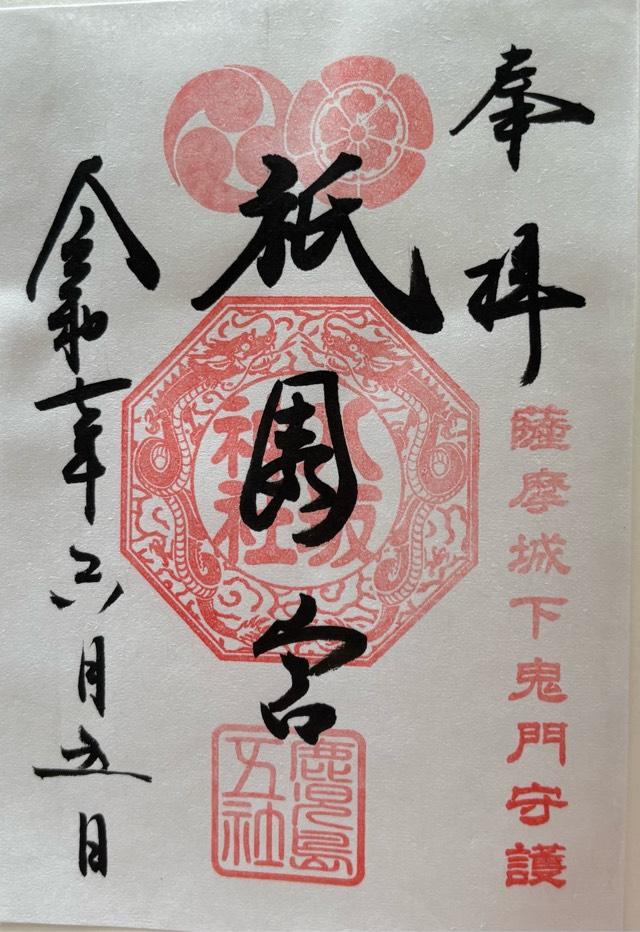 奉拝
薩摩城下鬼門守護
祇園宮
八坂
神社
鹿児島
五社
令和七年六月五日